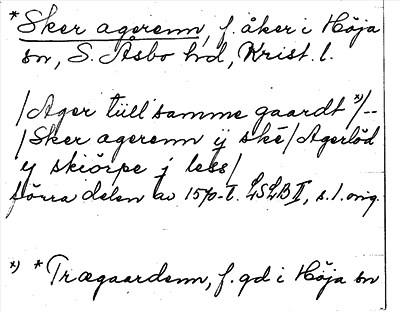 *Sker agerenn, f. åker i Höja
sn, S. Åsbo hd, Krist. l.
/Ager tüll samme gaardt *)/--
/Sker agerenn ÿ skē/Agerlöd
ÿ skiörpe j less/
förra delen av 1570-t. LSLB II, s. 1. orig.
*) *Trægaardenn, f. gd i Höja sn